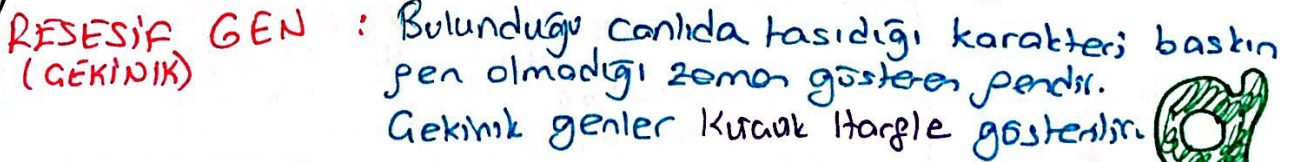 RESESİF GEN : Bulunduğu canlıda taşıdığı karakteri baskın
(GEKİNİK) gen olmadığı zaman gösteren gendir.
Gekinik genler Küçük Harfle gösterilir. a